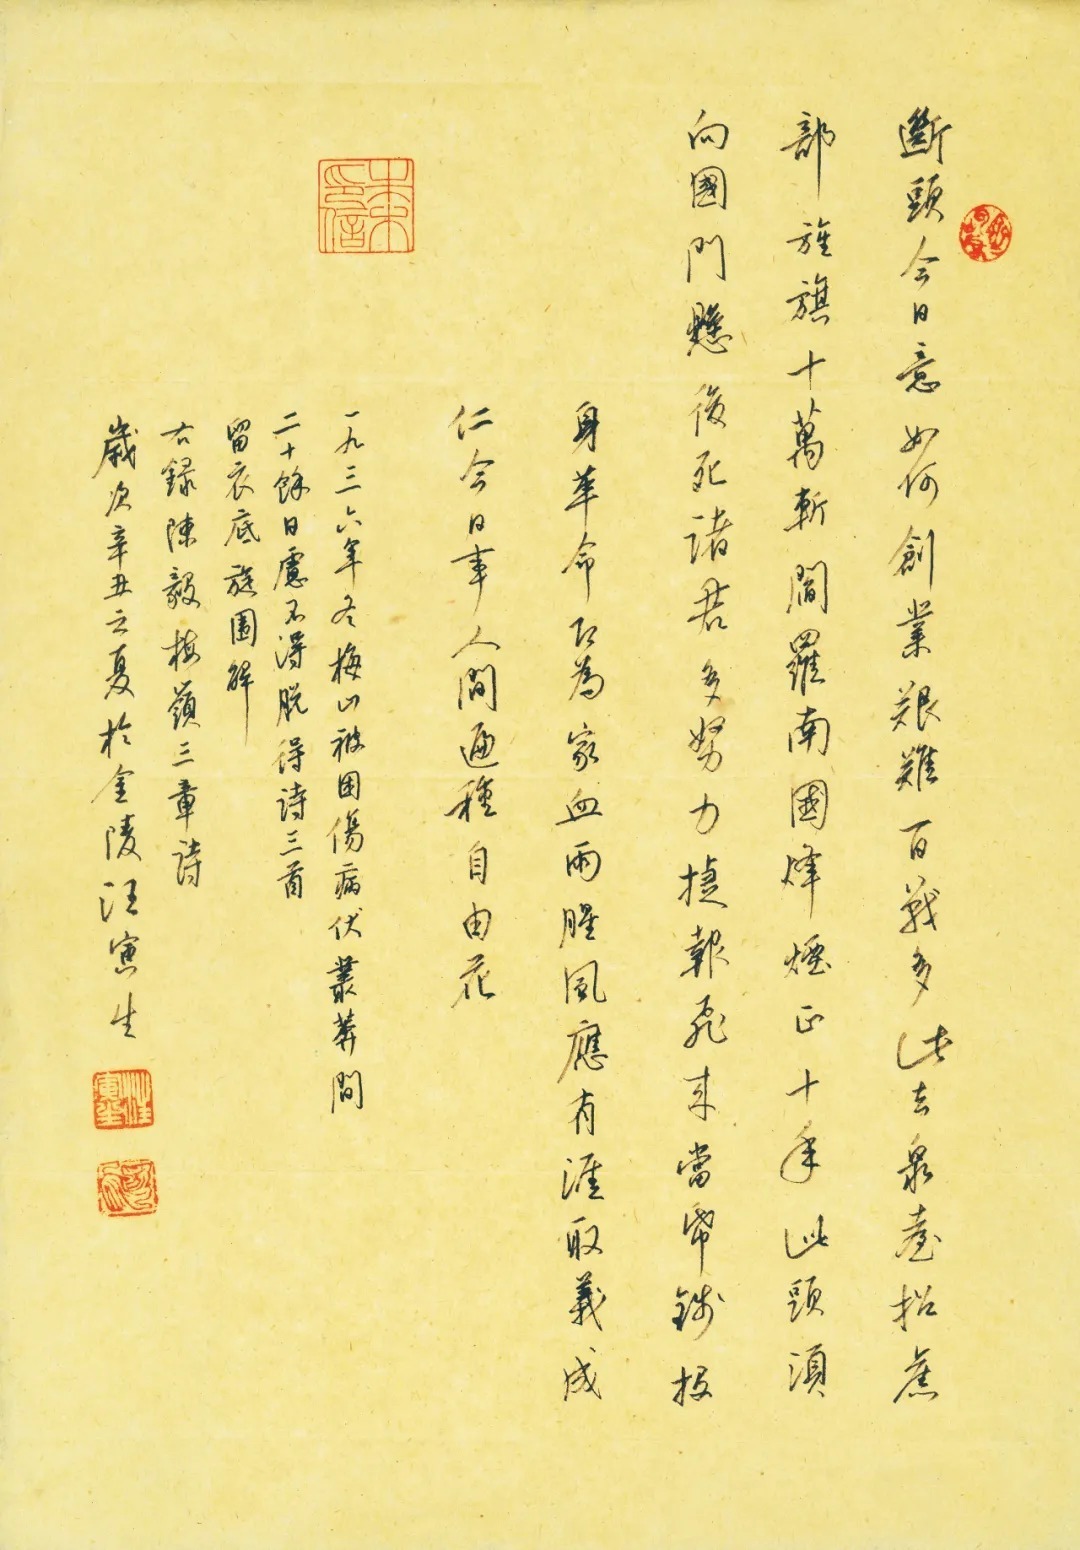 斷頭今日意如何創業艱難百戰多此去泉臺招舊
部旌旗十萬斬閻羅南國烽煙正十年此頭須
向國門懸後死諸君多努力捷報飛來當紙錢投
身革命即為家血雨腥風應有涯取義成
仁今日事人間遍種自由花
一九三六年冬梅山被困傷病伏叢莽間
二十餘日慮不得脫得詩三首
留衣底旋圍解
右録陳毅梅嶺三章詩
歲次辛丑之夏於金陵汪寅生
汪寅生